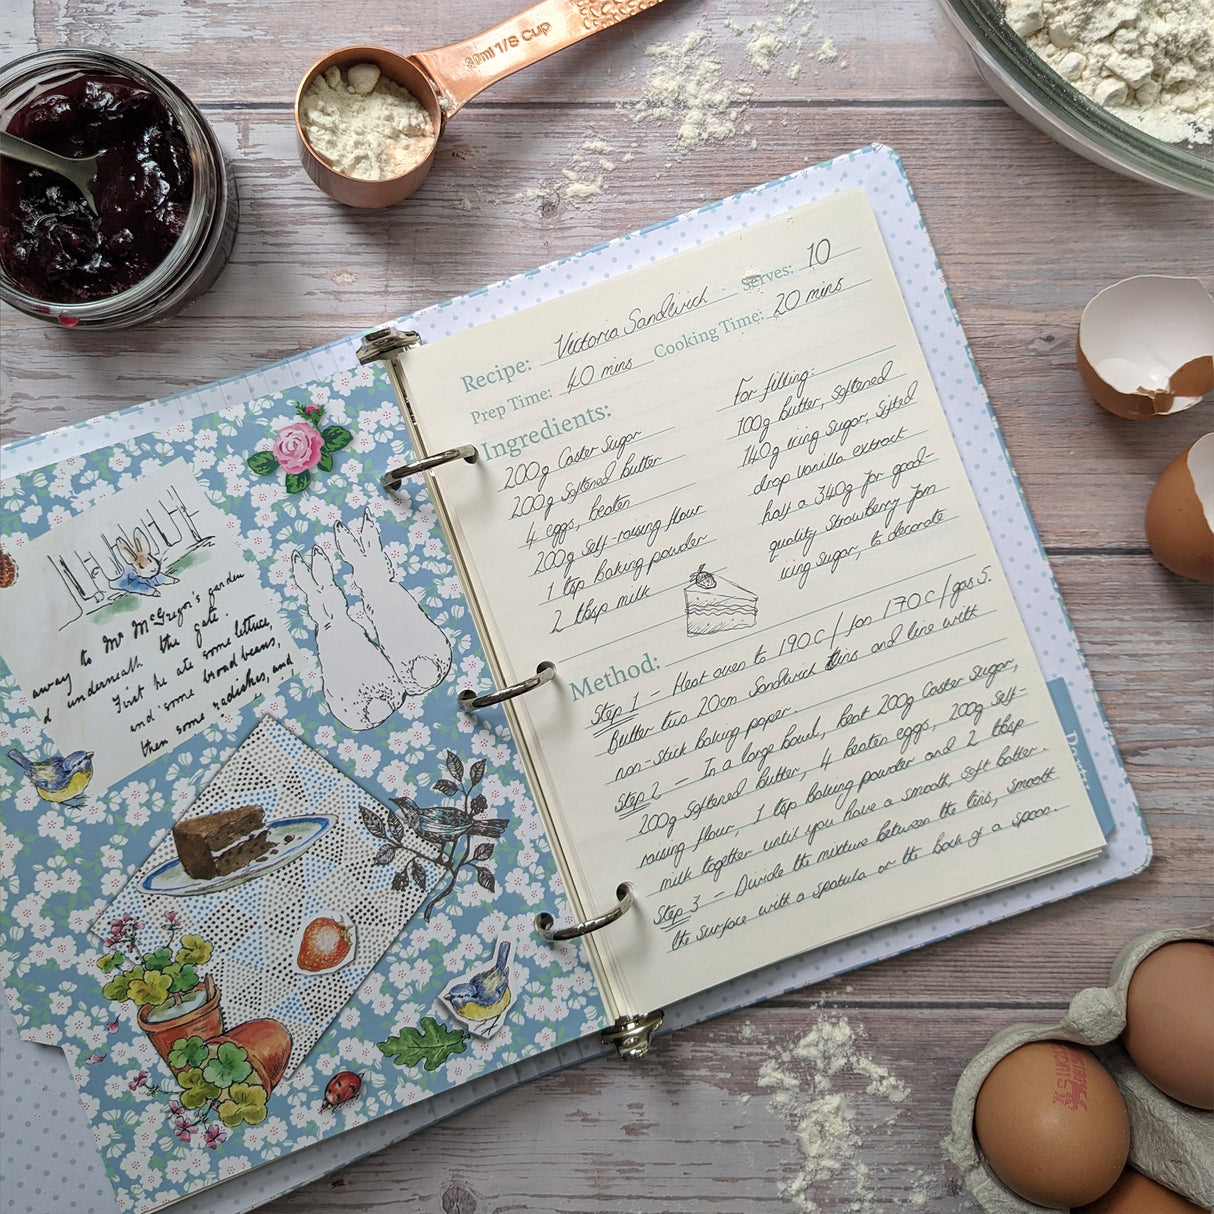 30ml 1/8 Cup
Recipe: Victoria Sandwich Serves: 10
Prep Time: 40 mins Cooking Time: 20 mins
Ingredients:
200g Caster Sugar
200g Softened Butter
4 eggs, beaten
200g Self-raising flour
1 tsp baking powder
2 tbsp milk
For filling:
100g butter, softened
140g icing sugar, sifted
drop vanilla extract
half a 340g jar good-
quality strawberry jam
icing sugar, to decorate
Method:
Step 1 - Heat oven to 190C / fan 170C / gas 5.
Butter two 20cm Sandwich tins and line with
non-stick baking paper.
Step 2 - In a large bowl, beat 200g Caster Sugar,
200g Softened butter, 4 beaten eggs, 200g Self-
raising flour, 1 tsp baking powder and 2 tbsp
milk together until you have a smooth, soft batter.
Step 3 - Divide the mixture between the tins, smooth
the surface with a spatula or the back of a spoon.
to Mr McGregor's garden
away underneath the gate
First he ate some lettuce,
and some broad beans,
then some radishes, and